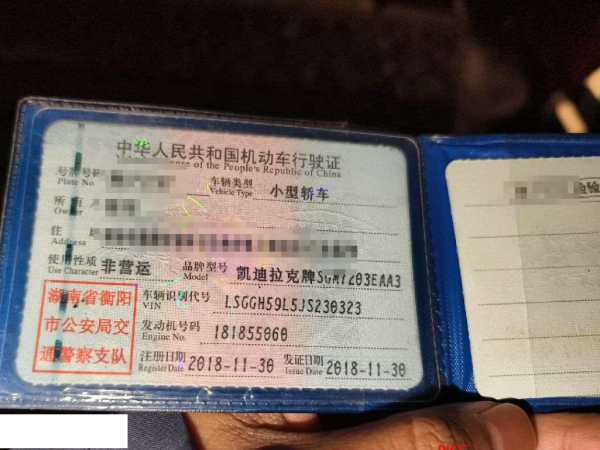 中华人民共和国机动车行驶证
of the People's Republic of China
号牌号码
Plate No
车辆类型 小型轿车
Vehicle Type
所有人
Owner
住址
Address
使用性质 非营运
Use Character
品牌型号 凯迪拉克牌SGM7203EAA3
Model
湖南省衡阳
市公安局交
通警察支队
车辆识别代号 LSGGH59L5JS230323
VIN
发动机号码 181855060
Engine No.
注册日期 2018-11-30
Register Date
发证日期 2018-11-30
Issue Date
检验